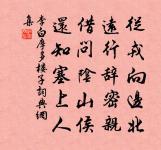 從戎向邊北
遠行辭密親
借問陰山候
還知塞上人
李白摩多樓子詞典網
集